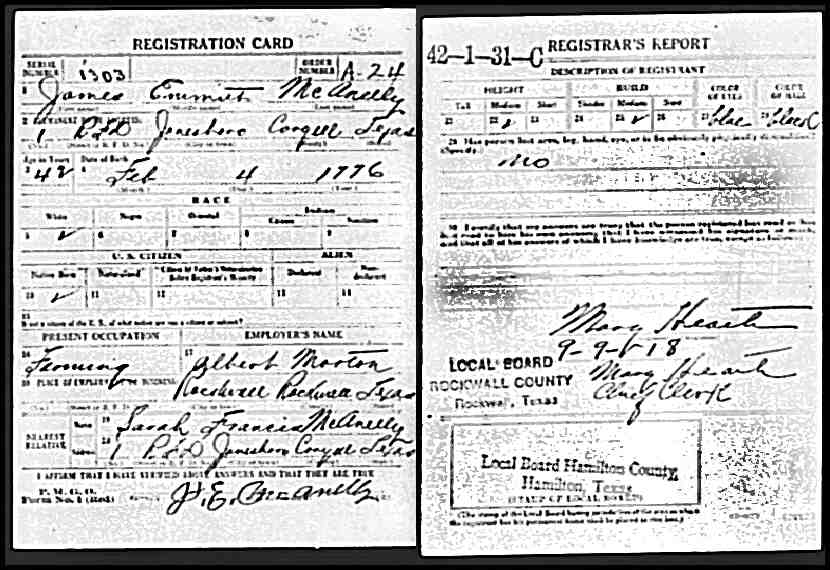 REGISTRATION CARD
SERIAL NUMBER 1303 ORDER NUMBER A-24
1 James Emmitt McAnelly
2 PERMANENT HOME ADDRESS:
1 RFD Jonesboro Coryell Texas
Age in Years Date of Birth
3 42 4 Feb 4 1776
(Month.) (Day.) (Year.)
RACE
White Negro Oriental Indian
Citizen Noncitizen
5 ✓ 6 7 8 9
U. S. CITIZEN ALIEN
Native Born Naturalized Citizen by Father's Naturalization Before Registrant's Majority Declarant Non-declarant
10 ✓ 11 12 13 14
15
If not a citizen of the U. S., of what nation are you a citizen or subject?
PRESENT OCCUPATION EMPLOYER'S NAME
16 Farming 17 Albert Morton
18 PLACE OF EMPLOYMENT OR BUSINESS:
Rockwall Rockwall Texas
NEAREST RELATIVE
Name 19 Sarah Francis McAnelly
Address 20 1 RFD Jonesboro Coryell Texas
I AFFIRM THAT I HAVE VERIFIED ABOVE ANSWERS AND THAT THEY ARE TRUE
P. M. G. O.
Form No. 1 (Red) J. E. McAnelly
42-1-31-C REGISTRAR'S REPORT
DESCRIPTION OF REGISTRANT
HEIGHT BUILD COLOR OF EYES COLOR OF HAIR
Tall Medium Short Slender Medium Stout
21 22 ✓ 23 24 25 ✓ 26 27 blue 28 black
29 Has person lost arm, leg, hand, eye, or is he obviously physically disqualified?
(Specify.)
no
30 I certify that my answers are true; that the person registered has read or has
had read to him his own answers; that I have witnessed his signature or mark,
and that all of his answers of which I have knowledge are true, except as follows:
Mary Heath
9-9-18
LOCAL BOARD
ROCKWALL COUNTY
Rockwall, Texas
Mary Heath
Chief Clerk
Local Board Hamilton County,
Hamilton, Texas
(STAMP OF LOCAL BOARD)
(The stamp of the Local Board having jurisdiction of the area in which
the registrant has his permanent home shall be placed in this box.)